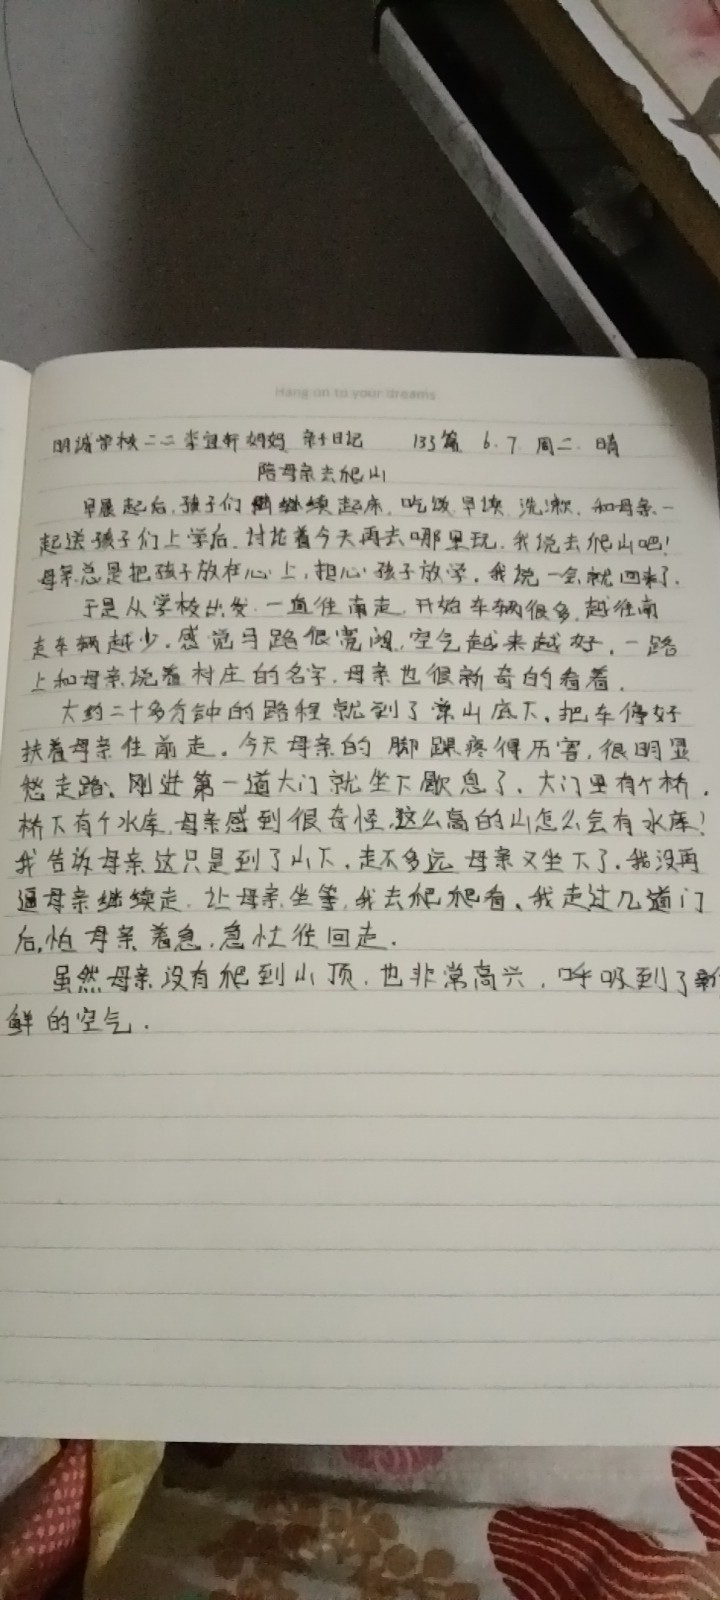 Hang on to your dreams
明诚学校二二李宜轩妈妈 亲子日记 133篇 6.7 周二 晴
陪母亲去爬山
早晨起后,孩子们继续起床,吃饭早读,洗漱,和母亲一
起送孩子们上学后,讨论着今天再去哪里玩,我说去爬山吧!
母亲总是把孩子放在心上,担心孩子放学,我说一会就回来了.
于是从学校出发,一直往南走,开始车辆很多,越往南
走车辆越少,感觉马路很宽阔,空气越来越好,一路
上和母亲说着村庄的名字,母亲也很新奇的看着.
大约二十多分钟的路程就到了常山底下,把车停好
扶着母亲往前走.今天母亲的脚踝疼得厉害,很明显
愁走路,刚进第一道大门就坐下歇息了,大门里有个桥,
桥下有个水库,母亲感到很奇怪,这么高的山怎么会有水库!
我告诉母亲这只是到了山下,走不多远母亲又坐下了,我没再
逼母亲继续走,让母亲坐等,我去爬爬看,我走过几道门
后,怕母亲着急,急忙往回走.
虽然母亲没有爬到山顶,也非常高兴,呼吸到了新
鲜的空气.